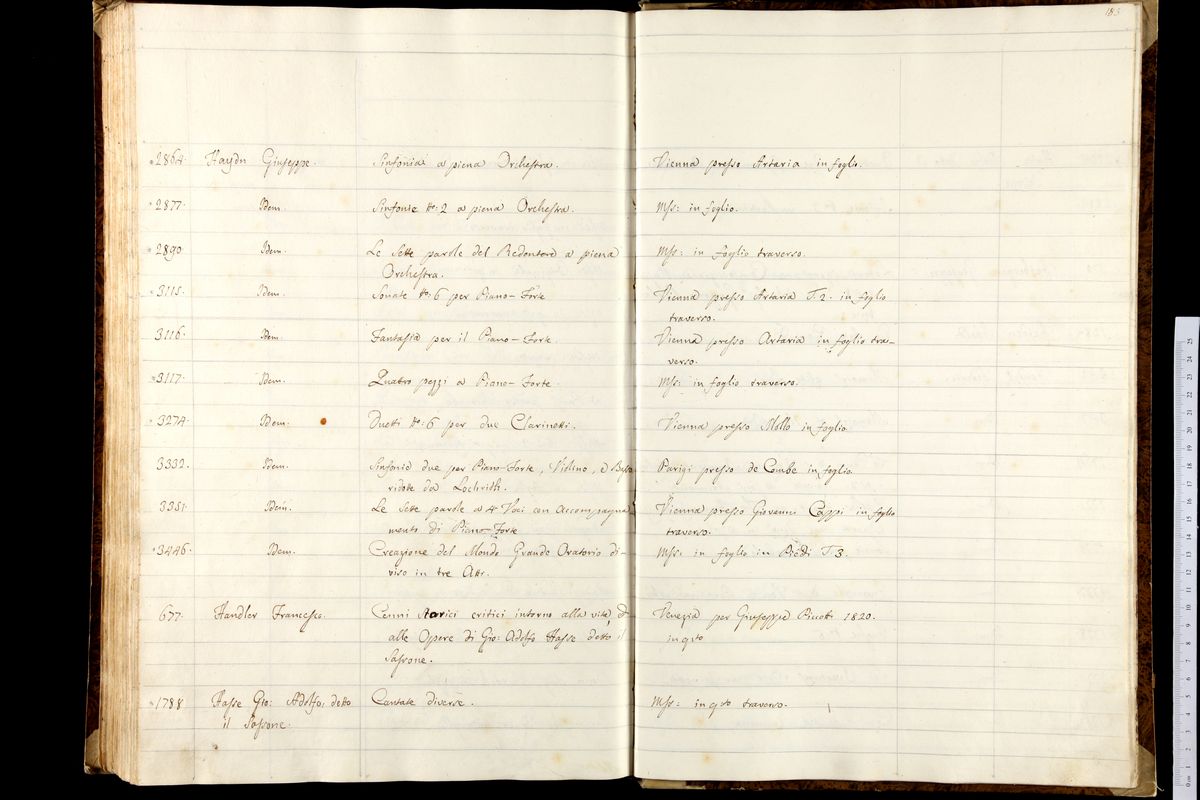 183
2864. Haydn Giuseppe. Sinfonia a piena Orchestra. Vienna presso Artaria in foglio.
2877. Idem. Sinfonie No: 2 a piena Orchestra. Mss: in foglio.
2890 Idem. Le Sette parole del Redentore a piena Mss: in foglio traverso.
Orchestra.
3115. Idem. Sonate No: 6 per Piano-Forte Vienna presso Artaria T. 2. in foglio
traverso.
3116. Idem. Fantasia per il Piano-Forte. Vienna presso Artaria in foglio tra-
verso.
3117. Idem. Quatro pezzi a Piano-Forte. Mss: in foglio traverso.
3274. Idem. Duetti No: 6 per due Clarinetti. Vienna presso Mollo in foglio
3332. Idem. Sinfonie due per Piano-Forte, Violino, e Basso Parigi presso de Combe in foglio.
ridotte da
3351. Idem. Le Sette parole a 4 Voci con accompagna Vienna presso Giovanni Cappi in foglio
mento di Piano-Forte traverso.
3446. Idem. Creazione del Mondo Grande Oratorio di- Mss: in foglio in T 3.
viso in tre Atti.
677. Handler Francesco. Cenni storici critici intorno alla vita, ed Venezia per Giuseppe Picotti 1820.
alle Opere di Gio: Adolfo Hasse detto il in qto
Sassone.
1788 Hasse Gio: Adolfo, detto Cantate diverse. Mss: in qto traverso.
il Sassone.